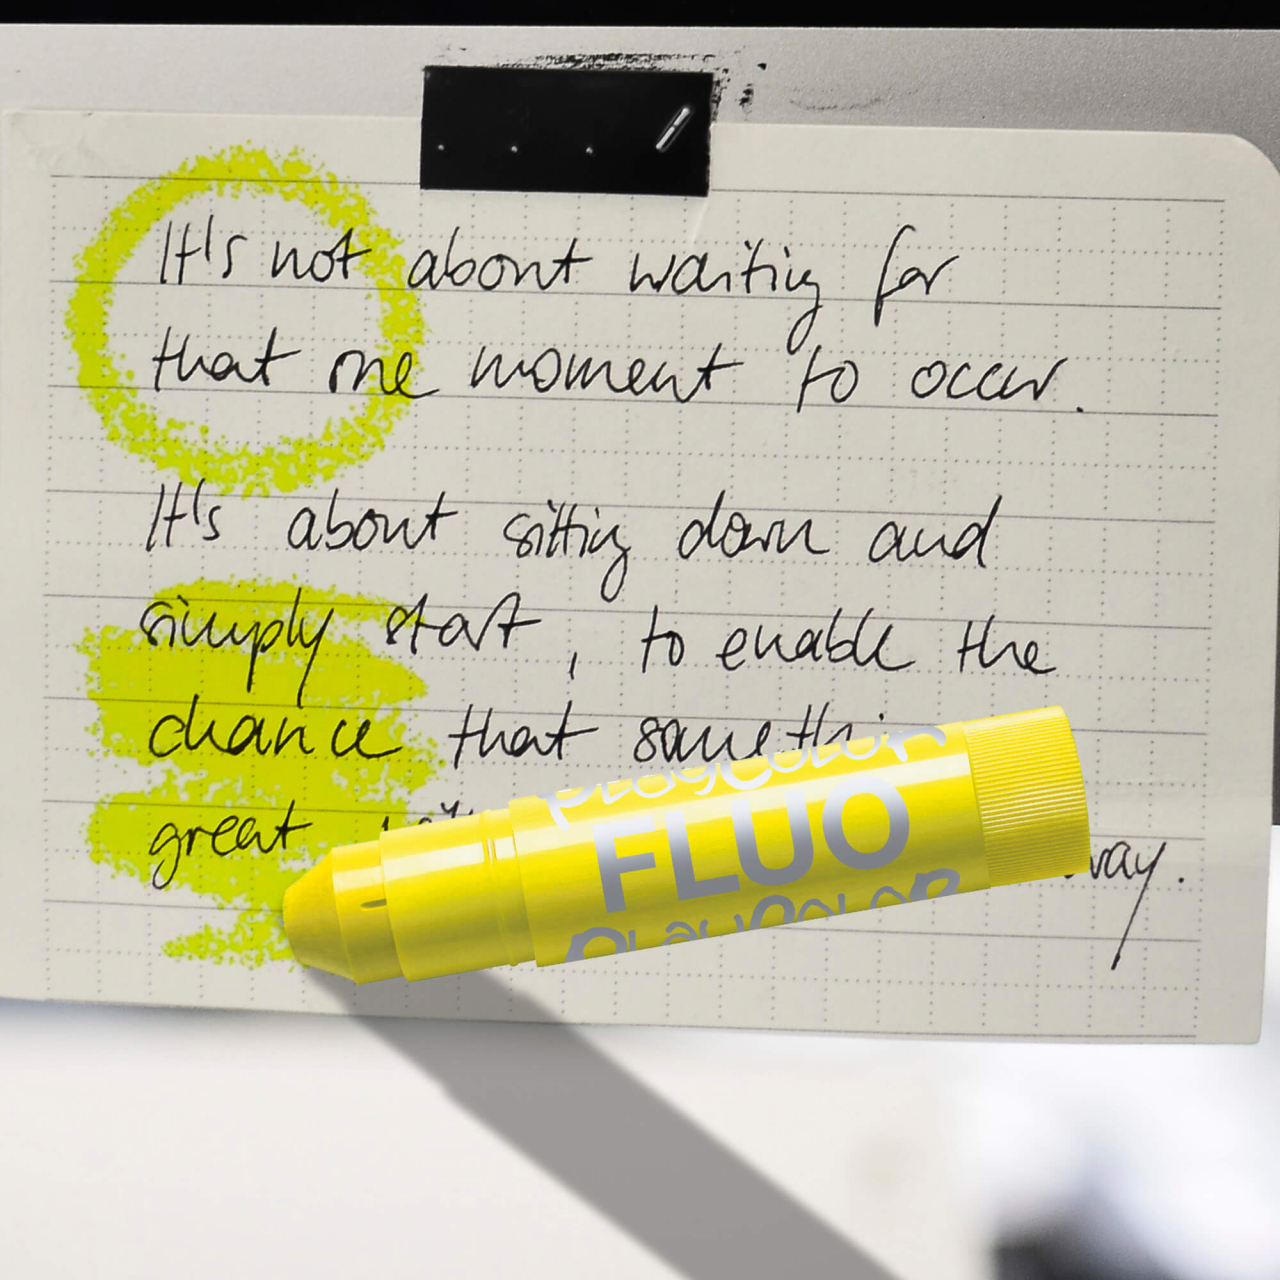 It's not about waiting for
that one moment to occur.
It's about sitting down and
simply start, to enable the
chance that somethi
great way.
PLAYCOLOR
FLUO
PLAYCOLOR